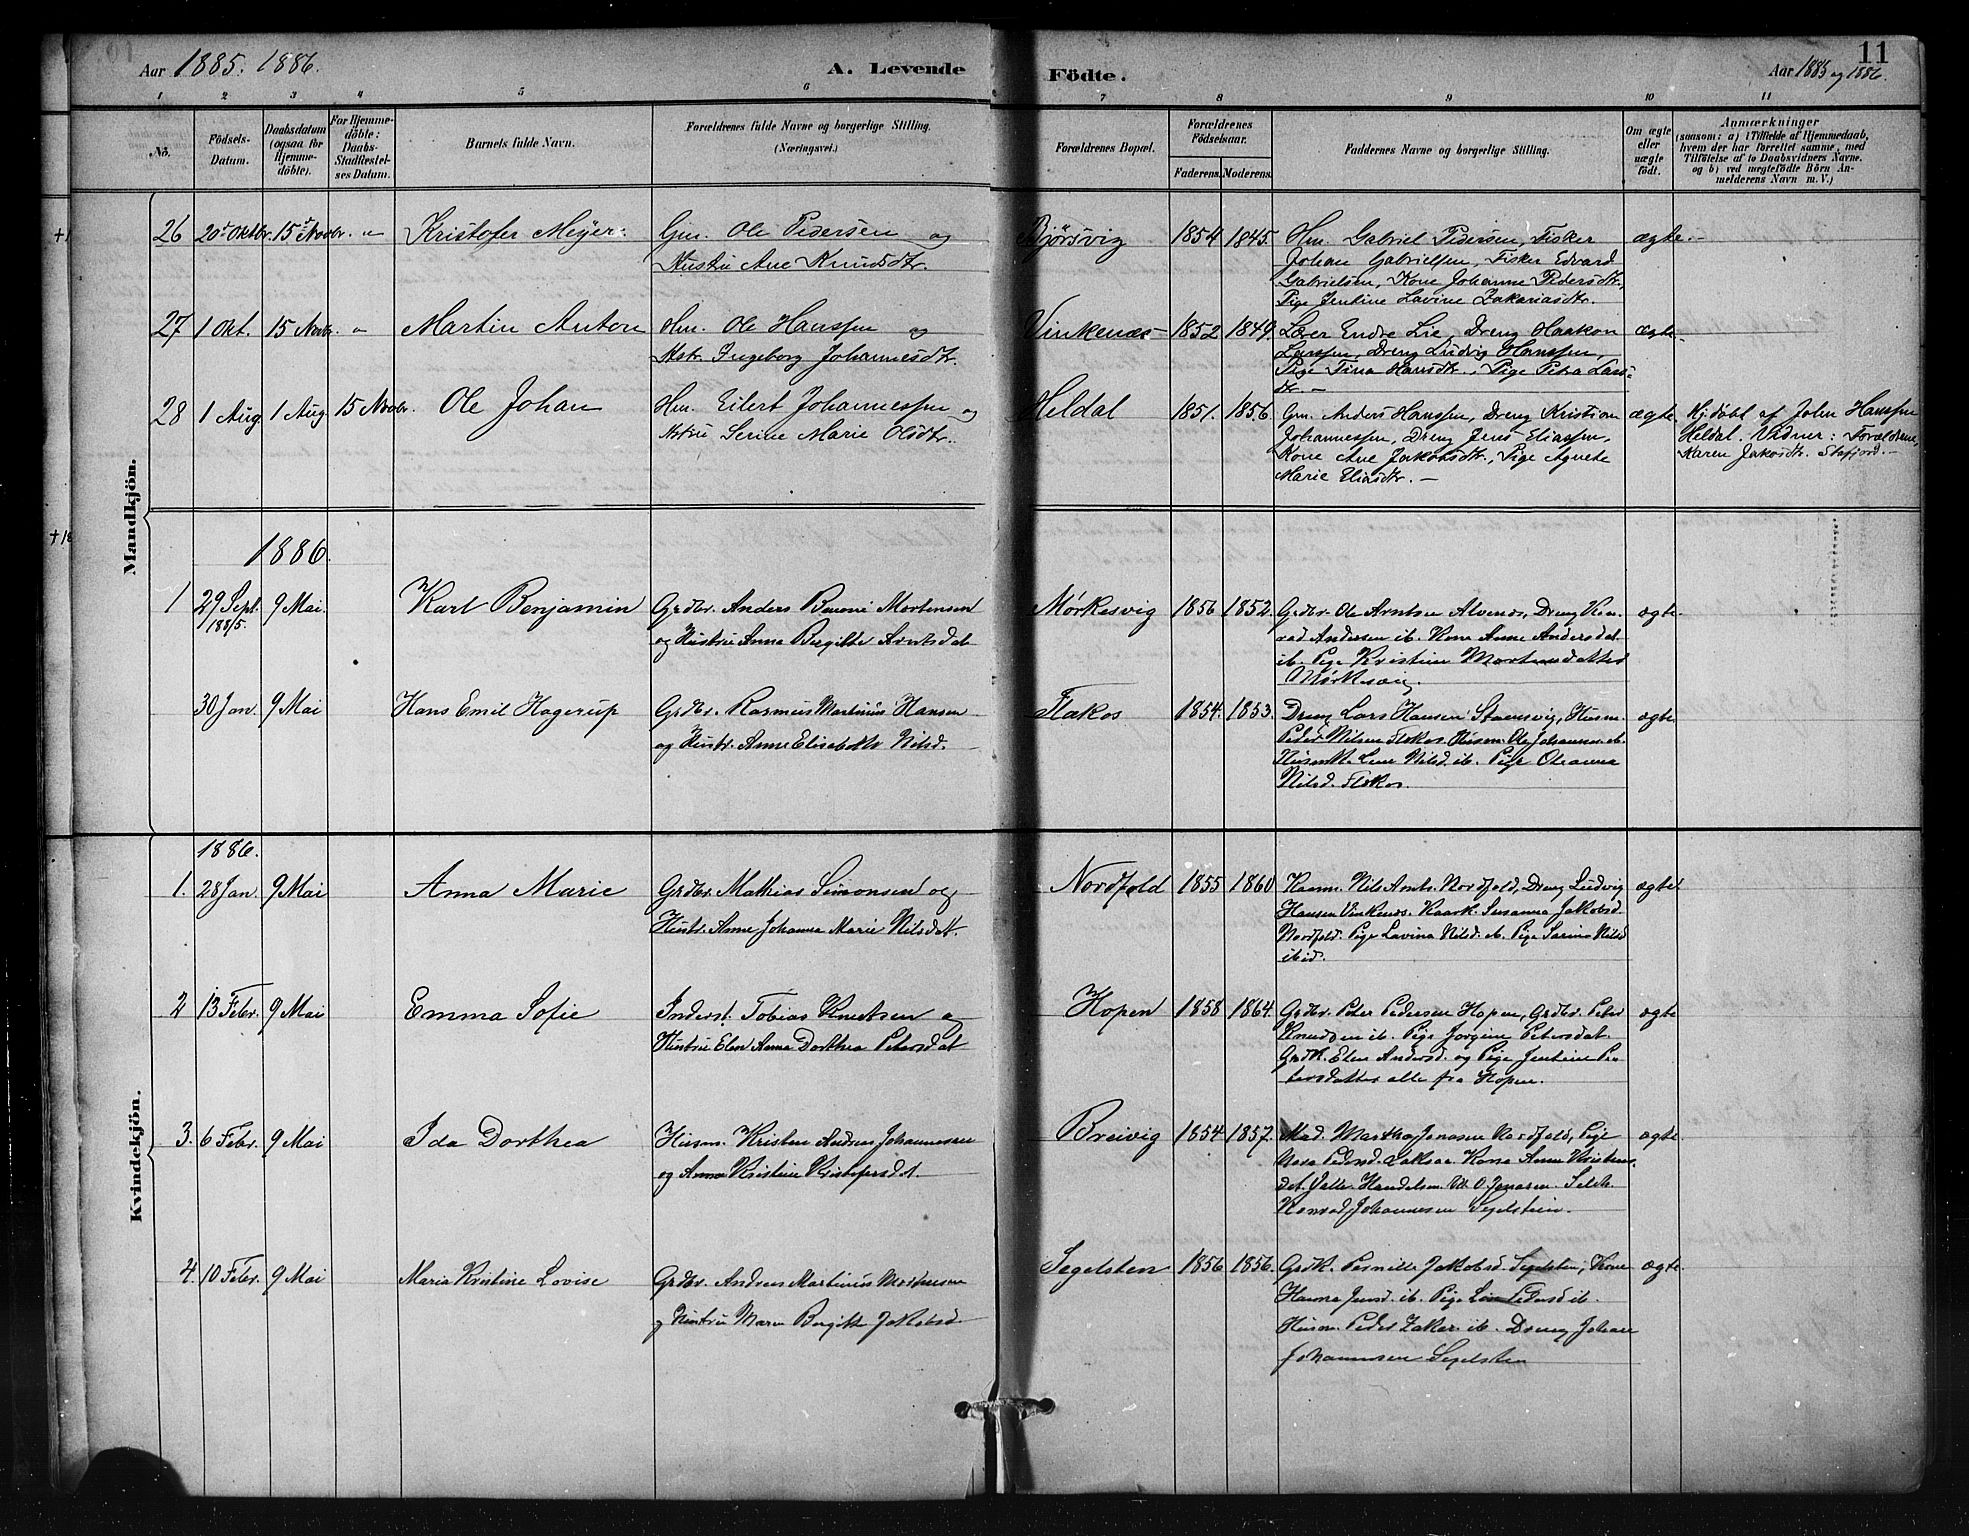 Aar 1885. 1886.
A. Levende
Födte.
Aar 1885 og 1886.
11
1 2 3 4 5 6 7 8 9 10 11
No.
Födsels-
Datum.
Daabsdatum
(ogsaa for
Hjemme-
döbte).
For Hjemme-
döbte:
Daabs-
Stadfæstel-
ses Datum.
Barnets fulde Navn.
Forældrenes fulde Navne og borgerlige Stilling.
(Næringsvei.)
Forældrenes Bopæl.
Forældrenes
Födselsaar.
Faderens. Moderens.
Faddernes Navne og borgerlige Stilling.
Om ægte
eller
uægte
født.
Anmærkninger
(saasom: a) i Tilfælde af Hjemmedaab,
hvem der har forrettet samme, med
Tilföielse af to Daabsvidners Navne.
og b) ved uægtefödte Börn An-
melderens Navn m. V.)
Mandkjön.
26 20 Oktbr. 15 Novbr. " Kristofer Meyer. Gm. Ole Pedersen og
Hustru Ane Knudsdtr.
Bjørsvig 1854 1845. Hm. Gabriel Pedersen, Fisker
Johan Gabrielsen, Fisker Edvard
Gabrielsen, Kone Johanne Pedersdtr.,
Pige Jentine Lavine Zakariasdtr.
ægte.
27 1 Okt. 15 Novbr. " Martin Anton Hm. Ole Hanssen og
Hstr. Ingeborg Johannesdtr.
Vinkenæs 1852 1849. Lærer Endre Lie, Dreng Haakon
Larssen, Dreng Ludvig Hanssen,
Pige Tina Hansdtr., Pige Petra Lars-
dtr.
ægte
28 1 Aug. 1 Aug. 15 Novbr. Ole Johan Hm. Eilert Johannessen og
Hstru Serine Marie Olsdtr.
Heldal 1851. 1856. Gm. Anders Hanssen, Dreng Kristian
Johannessen, Dreng Jens Eliassen,
Kone Ane Jakobsdtr., Pige Agnete
Marie Eliasdtr.
ægte. Hj.døbt af John Hanssen
Heldal. Vidner: Forældrene,
Karen Jakobsdtr. Stafjord.
1886.
1 29 Sept. 1885. 9 Mai. Karl Benjamin Grdbr. Anders Benoni Mortensen
og Hustru Anna Bergitte Arntsdat
Mørkesvig 1856 1852. Grdbr. Ole Arntsen Alvenes, Dreng Kon-
rad Andersen ib. Kone Anne Andersdat.
ib. Pige Kristine Mortensdatter
Mørkesvig.
ægte
30 Jan. 9 Mai Hans Emil Hagerup Grdbr. Rasmus Martinus Hansen
og Hustr. Anne Elisabeth Nilsd.
Flakos 1854. 1853. Dreng Lars Hansen Stavnsvig, Husm.
Peder Nilsen Flakos. Husm. Ole Johannes. ib.
Husmk. Lene Nilsd. ib. Pige Oleanna
Nilsd. Flakos.
ægte
Kvindekjön.
1886.
1. 28 Jan. 9 Mai Anna Marie Grdbr. Mathias Simonsen og
Hustr. Anne Johanna Marie Nilsdatt.
Nordfold 1855 1860. Nils Arnts. Nordfold, Dreng Ludvig
Hansen Vinkenes. Susanna Jakobsd.
Nordfold. Pige Lavina Nilsd. ib. Pige Sarine Nilsd
ibid.
ægte
2 13 Febr. 9 Mai Emma Sofie Inderst. Tobias Knutsen og
Hustru Elen Anna Dorthea Petersdat
Hopen 1858 1864. Grdbr. Peter Pedersen Hopen, Grdbr. Peter
Knudsen ib. Pige Jorgine Petersdat.
Grdk. Elen Andersd. og Pige Jentine Pe-
tersdatter alle fra Hopen.
ægte
3. 6 Febr. 9 Mai Ida Dorthea Husm. Kristen Andreas Johannesen
og Anna Kristine Kristofersdat.
Breivig 1854 1857. Mad. Martha Jenasen Nordfold, Pige
Pedersd. Laksaa. Kone Anne Kristens-
dat. Handelsm. O. Jenasen.
Konrad Johannesen Segelstein.
ægte
4. 10 Febr. 9 Mai Maria Kristine Lovise Grdbr. Andreas Martinus Mortensen
og Hustru Maren Bergitte Jakobsd.
Segelsten 1856 1856. Grdk. Pernille Jakobsd. Segelsten, Kone
Hanna Jensd. ib. Pige Lina Pedersd ib.
Husm. Peder Zakar. ib. Dreng Johan
Johannesen Segelsten
ægte